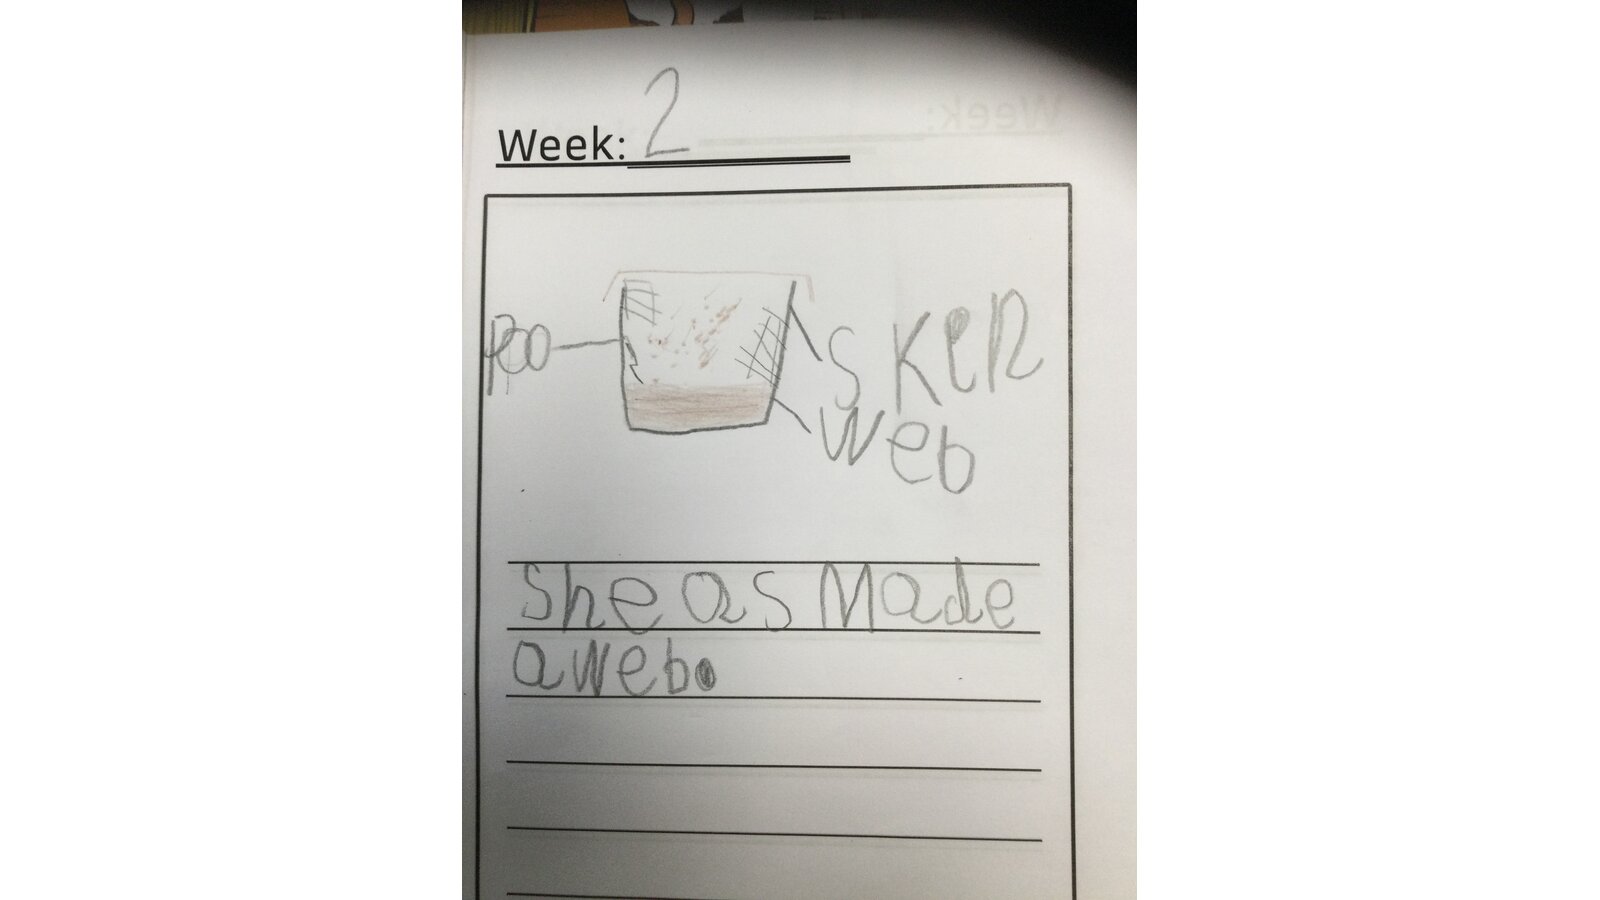 Week: 2
poo
sken
web
She as Made
a web.